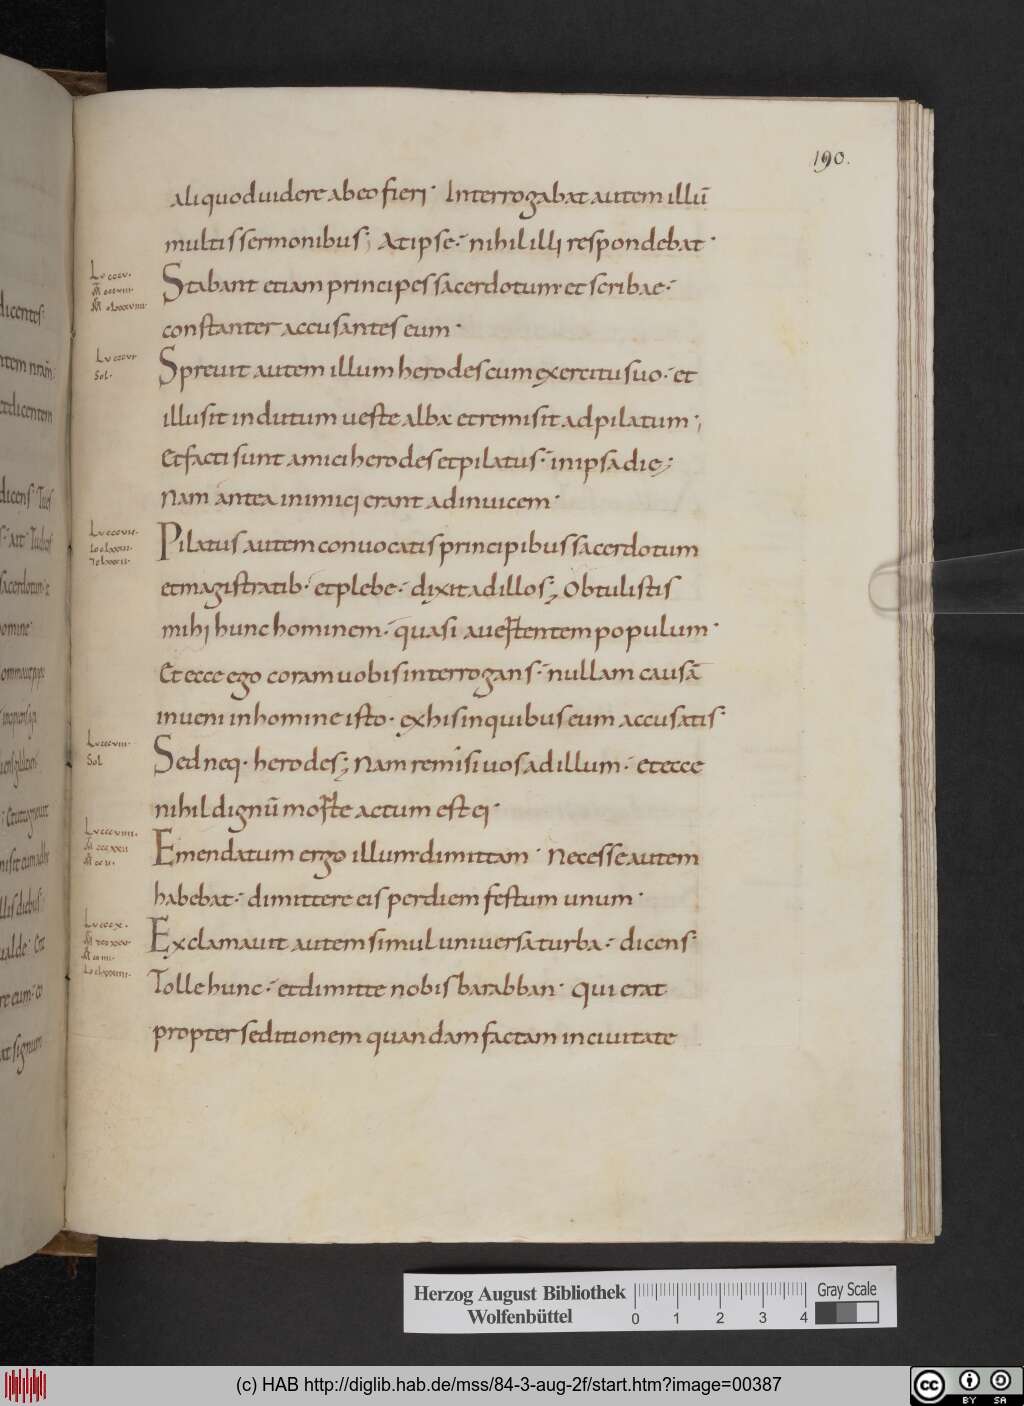 190.
aliquod uidere ab eo fieri · Interrogabat autem illū
multis sermonibus; At ipse · nihil illi respondebat ·
Lu cccu.
Stabant etiam principes sacerdotum et scribae ·
constanter accusantes eum ·
Lu cccui
Sol.
Spreuit autem illum herodes cum exercitu suo · et
illusit indutum ueste alba et remisit ad pilatum ;
Et facti sunt amici herodes et pilatus · in ipsa die;
Nam antea inimici erant adinuicem ·
Lu cccuii.
Pilatus autem conuocatis principibus sacerdotum
et magistratib · et plebe · dixit ad illos; Obtulistis
mihi hunc hominem · quasi auertentem populum ·
Et ecce ego coram uobis interrogans · nullam causā
inueni in homine isto · ex his in quibus eum accusatis ·
Lu cccuiii.
Sol
Sed neq · herodes; Nam remisi uos ad illum · et ecce
nihil dignū morte actum est ei ·
Lu cccuiiii.
Emendatum ergo illum dimittam · Necesse autem
habebat · dimittere eis per diem festum unum ·
Lu cccx.
Exclamauit autem simul uniuersa turba · dicens ·
Tolle hunc · et dimitte nobis barabban · Qui erat
propter seditionem quandam factam in ciuitate
dicentes
dicens
Herzog August Bibliothek
Wolfenbüttel
0 1 2 3 4
Gray Scale
(c) HAB http://diglib.hab.de/mss/84-3-aug-2f/start.htm?image=00387
cc BY SA